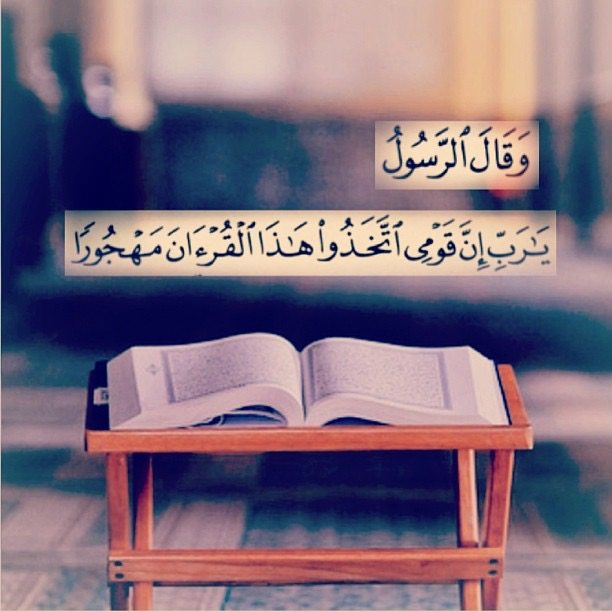 وَقَالَ ٱلرَّسُولُ
يَٰرَبِّ إِنَّ قَوْمِى ٱتَّخَذُوا۟ هَٰذَا ٱلْقُرْءَانَ مَهْجُورًا